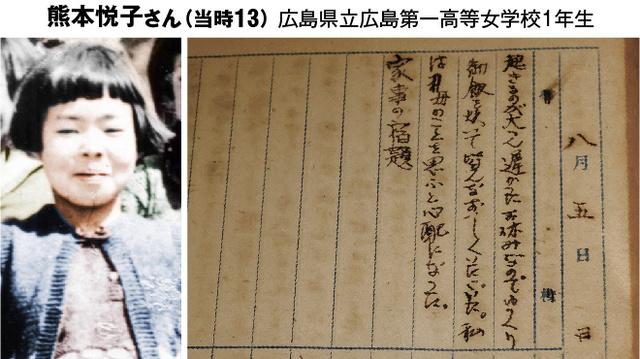 熊本悦子さん（当時13） 広島県立広島第一高等女学校1年生
八月五日 日
起きるのが大へん遅かった お休みなのでゆっくり
飯を炊いて皆んなおいしくいただいた。私
は母のことを思ふと心配になった。
家事の宿題